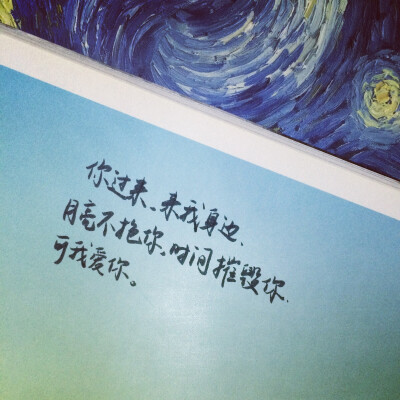 你过来、来我身边、
月亮不抱你、时间摧毁你、
可我爱你。